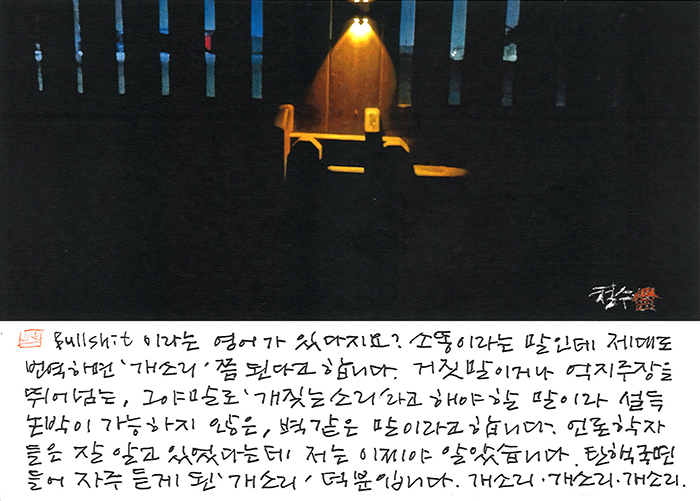 철수
Bullshit 이라는 영어가 있다지요? 소똥이라는 말인데 제대로
번역하면 '개소리' 쯤 된다고 합니다. 거짓말이거나 억지주장을
뛰어넘는, 그야말로 '개짖는 소리'라고 해야 할 말이라 설득
논박이 가능하지 않은, 벽같은 말이라고 합니다. 언론학자
들은 잘 알고 있었다는데 저는 이제야 알았습니다. 탄핵국면
들어 자주 듣게 된 '개소리' 덕분입니다. 개소리·개소리·개소리.